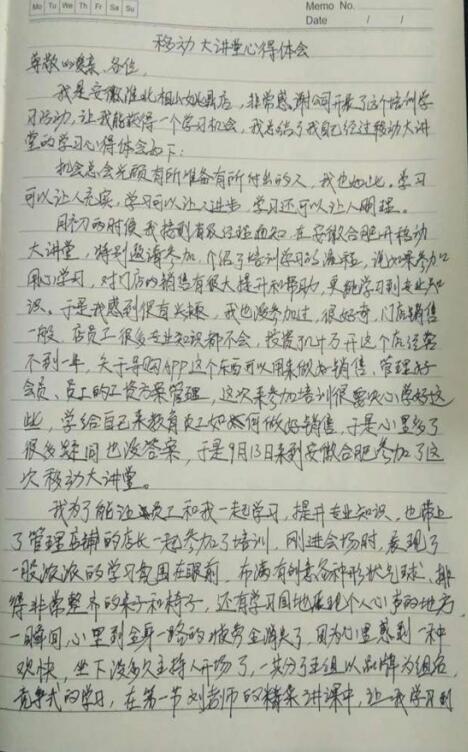 Mo Tu We Th Fr Sa Su Memo No.
Date / /
移动大讲堂心得体会
尊敬的 各位,
我是安徽淮北相山 店,非常感谢公司开展了这个培训学
习活动,让我能获得一个学习机会,我总结了我自己经过移动大讲
堂的学习心得体会如下:
机会总会光顾有所准备有所付出的人,我也如此。学习
可以让人充实,学习可以让人进步,学习还可以让人明理。
月初的时候我接到 经理通知,在安徽合肥开移动
大讲堂,特别邀请参加,介绍了培训学习的流程,说如果参加
用心学习,对门店的销售有很大提升和帮助,更能学习到专业知
识。于是我感到很有兴趣,我也没参加过,很好奇,门店销售
一般,店员工很多专业知识都不会,投资了几十万开这个店经营
不到一年,关于导购APP这个东西可以用来做好销售,管理好
会员,员工的工资方案管理,这次来参加培训很要决心学好这
些,学给自己来教育员工如何做好销售,于是心里多了
很多疑问也没答案,于是9月13日来到安徽合肥参加了这
次移动大讲堂。
我为了能让员工和我一起学习,提升专业知识,也带上
了管理店铺的店长一起参加了培训,刚进会场时,展现了
一股浓浓的学习氛围在眼前,布满有 各种形状气球,排
得非常整齐的桌子和椅子,还有学习园地展现个人心声的地方,
一瞬间,心里到全身一路的疲劳全消失了,因为心里感到一种
欢快,坐下没多久主持人开场了,一共分了五组以品牌为组名,
竞争式的学习,在第一节刘老师的精彩讲课中,让我学习到